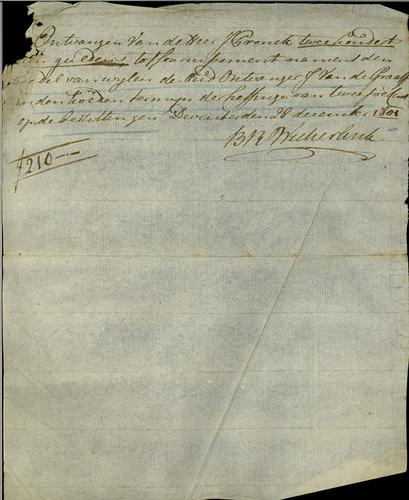 Ontvangen Van de Heer J Cronck twee hondert
guldens tot fournissement namens den
boedel van wylen de Oud Ontvanger J Van de Graaff
in den termyn der heffinge van twee
op de bezittingen Deventer den 28 december 1801
B R Wicherlink
ƒ210--